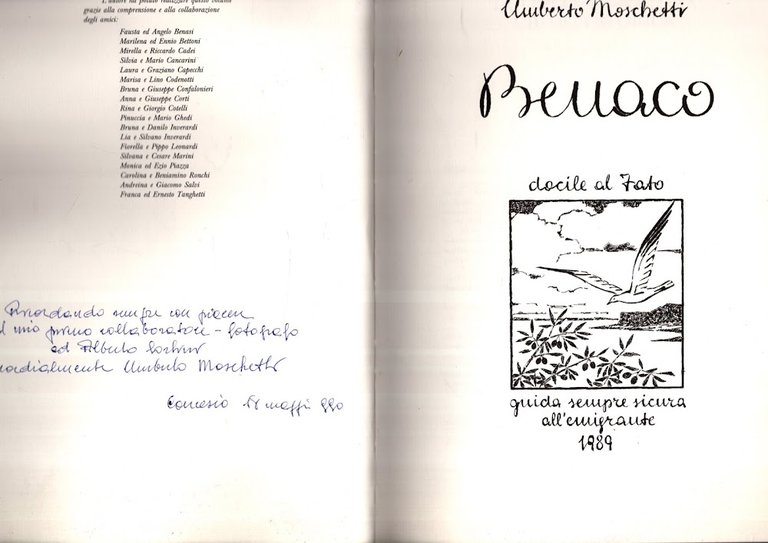 L'autore ha potuto realizzare questo volume
grazie alla comprensione e alla collaborazione
degli amici:
Fausta ed Angelo Benasi
Marilena ed Ennio Bettoni
Mirella e Riccardo Cadei
Silvia e Mario Cancarini
Laura e Graziano Capecchi
Marisa e Lino Codenotti
Bruna e Giuseppe Confalonieri
Anna e Giuseppe Corti
Rina e Giorgio Cotelli
Pinuccia e Mario Ghedi
Bruna e Danilo Inverardi
Lia e Silvano Inverardi
Fiorella e Pippo Leonardi
Silvana e Cesare Marini
Monica ed Ezio Piazza
Carolina e Beniamino Ronchi
Andreina e Giacomo Salvi
Franca ed Ernesto Tanghetti
Ricordando sempre con piacere
il mio primo collaboratore - fotografo
ed Alberto
cordialmente Umberto Moschetti
Concesio 990
Umberto Moschetti
Benaco
docile al Fato
guida sempre sicura
all'emigrante
1989